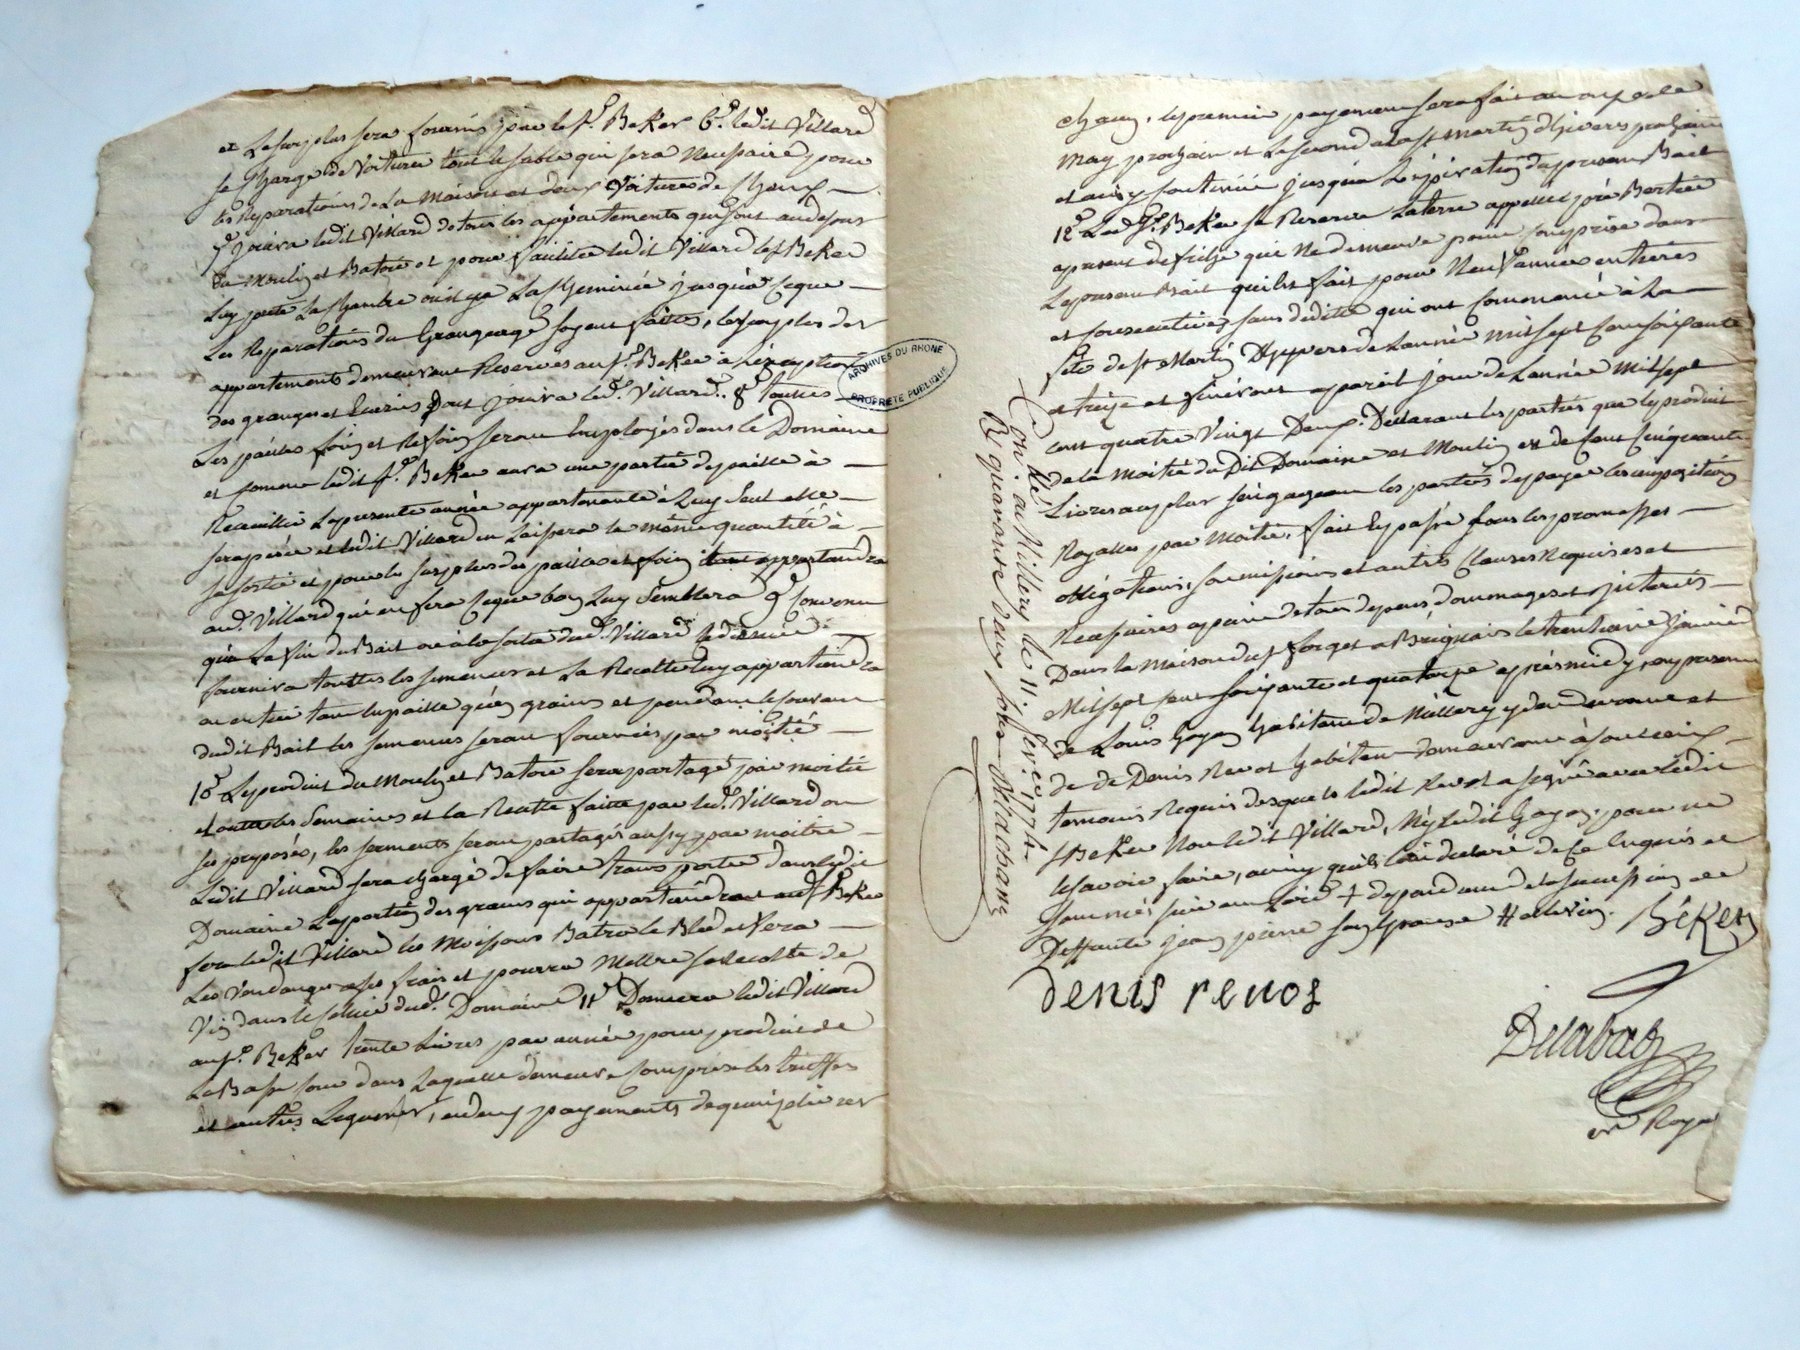 et Le surplus sera fourny par le sr. Beker 6o. ledit Villard
se Charge de Voiturer tout le sable qui sera Necessaire pour
les Reparations de La Maison et deux Voitures de Chaux
7o Jouira ledit Villard de tous les appartements qui sont au desous
du Moulin et Batoir et pour faciliter ledit Villard le sr Beker
Luy prete La Chambre ou il y a La Cheminée jusqu'a ce que
Les Reparations du Grangeage soyent faites, le surplus des
appartements demeurant Reservés au sr. Beker à l'exception
des granges et Ecuries dont jouira led. Villard. 8o toutes
Les pailles foin et Refoin seront Employés dans le Domaine
et comme ledit sr. Beker aura une partie de paille à
Recueillir la presente année appartenante à Luy seul elle
sera pesée et ledit Villard en Laissera la même quantité à
sa sortie et pour le surplus des pailles et foin appartiendra
aud. Villard qui en fera ce que bon Luy Semblera 9o Convenu
qu'a La fin du Bail ou à la sortie dud. Villard
fournira touttes les semences et La Recolte luy appartiendra
en entier tant en paille qu'en grains et pendant le courant
dudit Bail les semences seront fournies par moitié
10o Le produit du Moulin et Batoir sera partagé par moitié
et toutes les Semaines et la Recette faitte par led. Villard ou
ses preposés, les serments seront partagés aussy par moitié
Ledit Villard sera chargé de faire transporter dans ledit
Domaine La portion des grains qui appartiendront aud sr Beker
fera ledit Villard les Moissons Batra le Bled et fera
Les Vendanges a ses frais et pourra Mettre sa Recolte de
Vin dans le Cellier dud. Domaine 11o Donnera ledit Villard
au sr. Beker trente Livres par année pour produit de
La Basse Cour dans Laquelle demeure Comprise les truffes
et autres Legumes, en deux payements de quinze livres
chacun, le premier payement sera fait au onze de
may prochain et Le second a la st martin d'hivers prochain
et ainsy continüé jusqu'a L'expiration du present Bail
12o Led. sr. Beker se Reserve La terre appellée
a present de friche qui Ne demeure point comprise dans
Le present Bail qui est fait pour Neuf années entieres
et consecutives sans dedite qui ont Commencé à La
fete de st Martin D'hyvers de L'année mil sept Cent soixante
et treize et finiront a pareil jour de L'année mil sept
cent quatre Vingt Deux. Declarant les parties que le produit
de la Moitié du Dit Domaine et Moulin est de Cent Cinquante
Livres au plus s'engageant les parties de payer les impositions
Royalles par Moitié. fait et passé sous les promesses
obligations, soumissions et autres Clauses Requises et
Necessaires a peine de tous depens dommages et interets
Dans la maison du sr forges a Brignais le trentieme Janvier
Mil sept cent soixante et quatorze après midy, en presence
de Louis Goyon habitant de Millery y demeurant et
de Denis Revos habitant demeurant à
temoins Requis desquels ledit Revos a signé avec ledit
sr Beker Non ledit Villard, Ny ledit Goyon, pour ne
le savoir faire, ainsy qu'ils l'ont declaré de Ce Enquis et
sommés
Deffunte
Béker
denis revos
Delabat
Not Royal
Con.lé à Millery le 11. fev.er 1774.
R. quarante deux sols Delachant
ARCHIVES DU RHONE
PROPRIETE PUBLIQUE